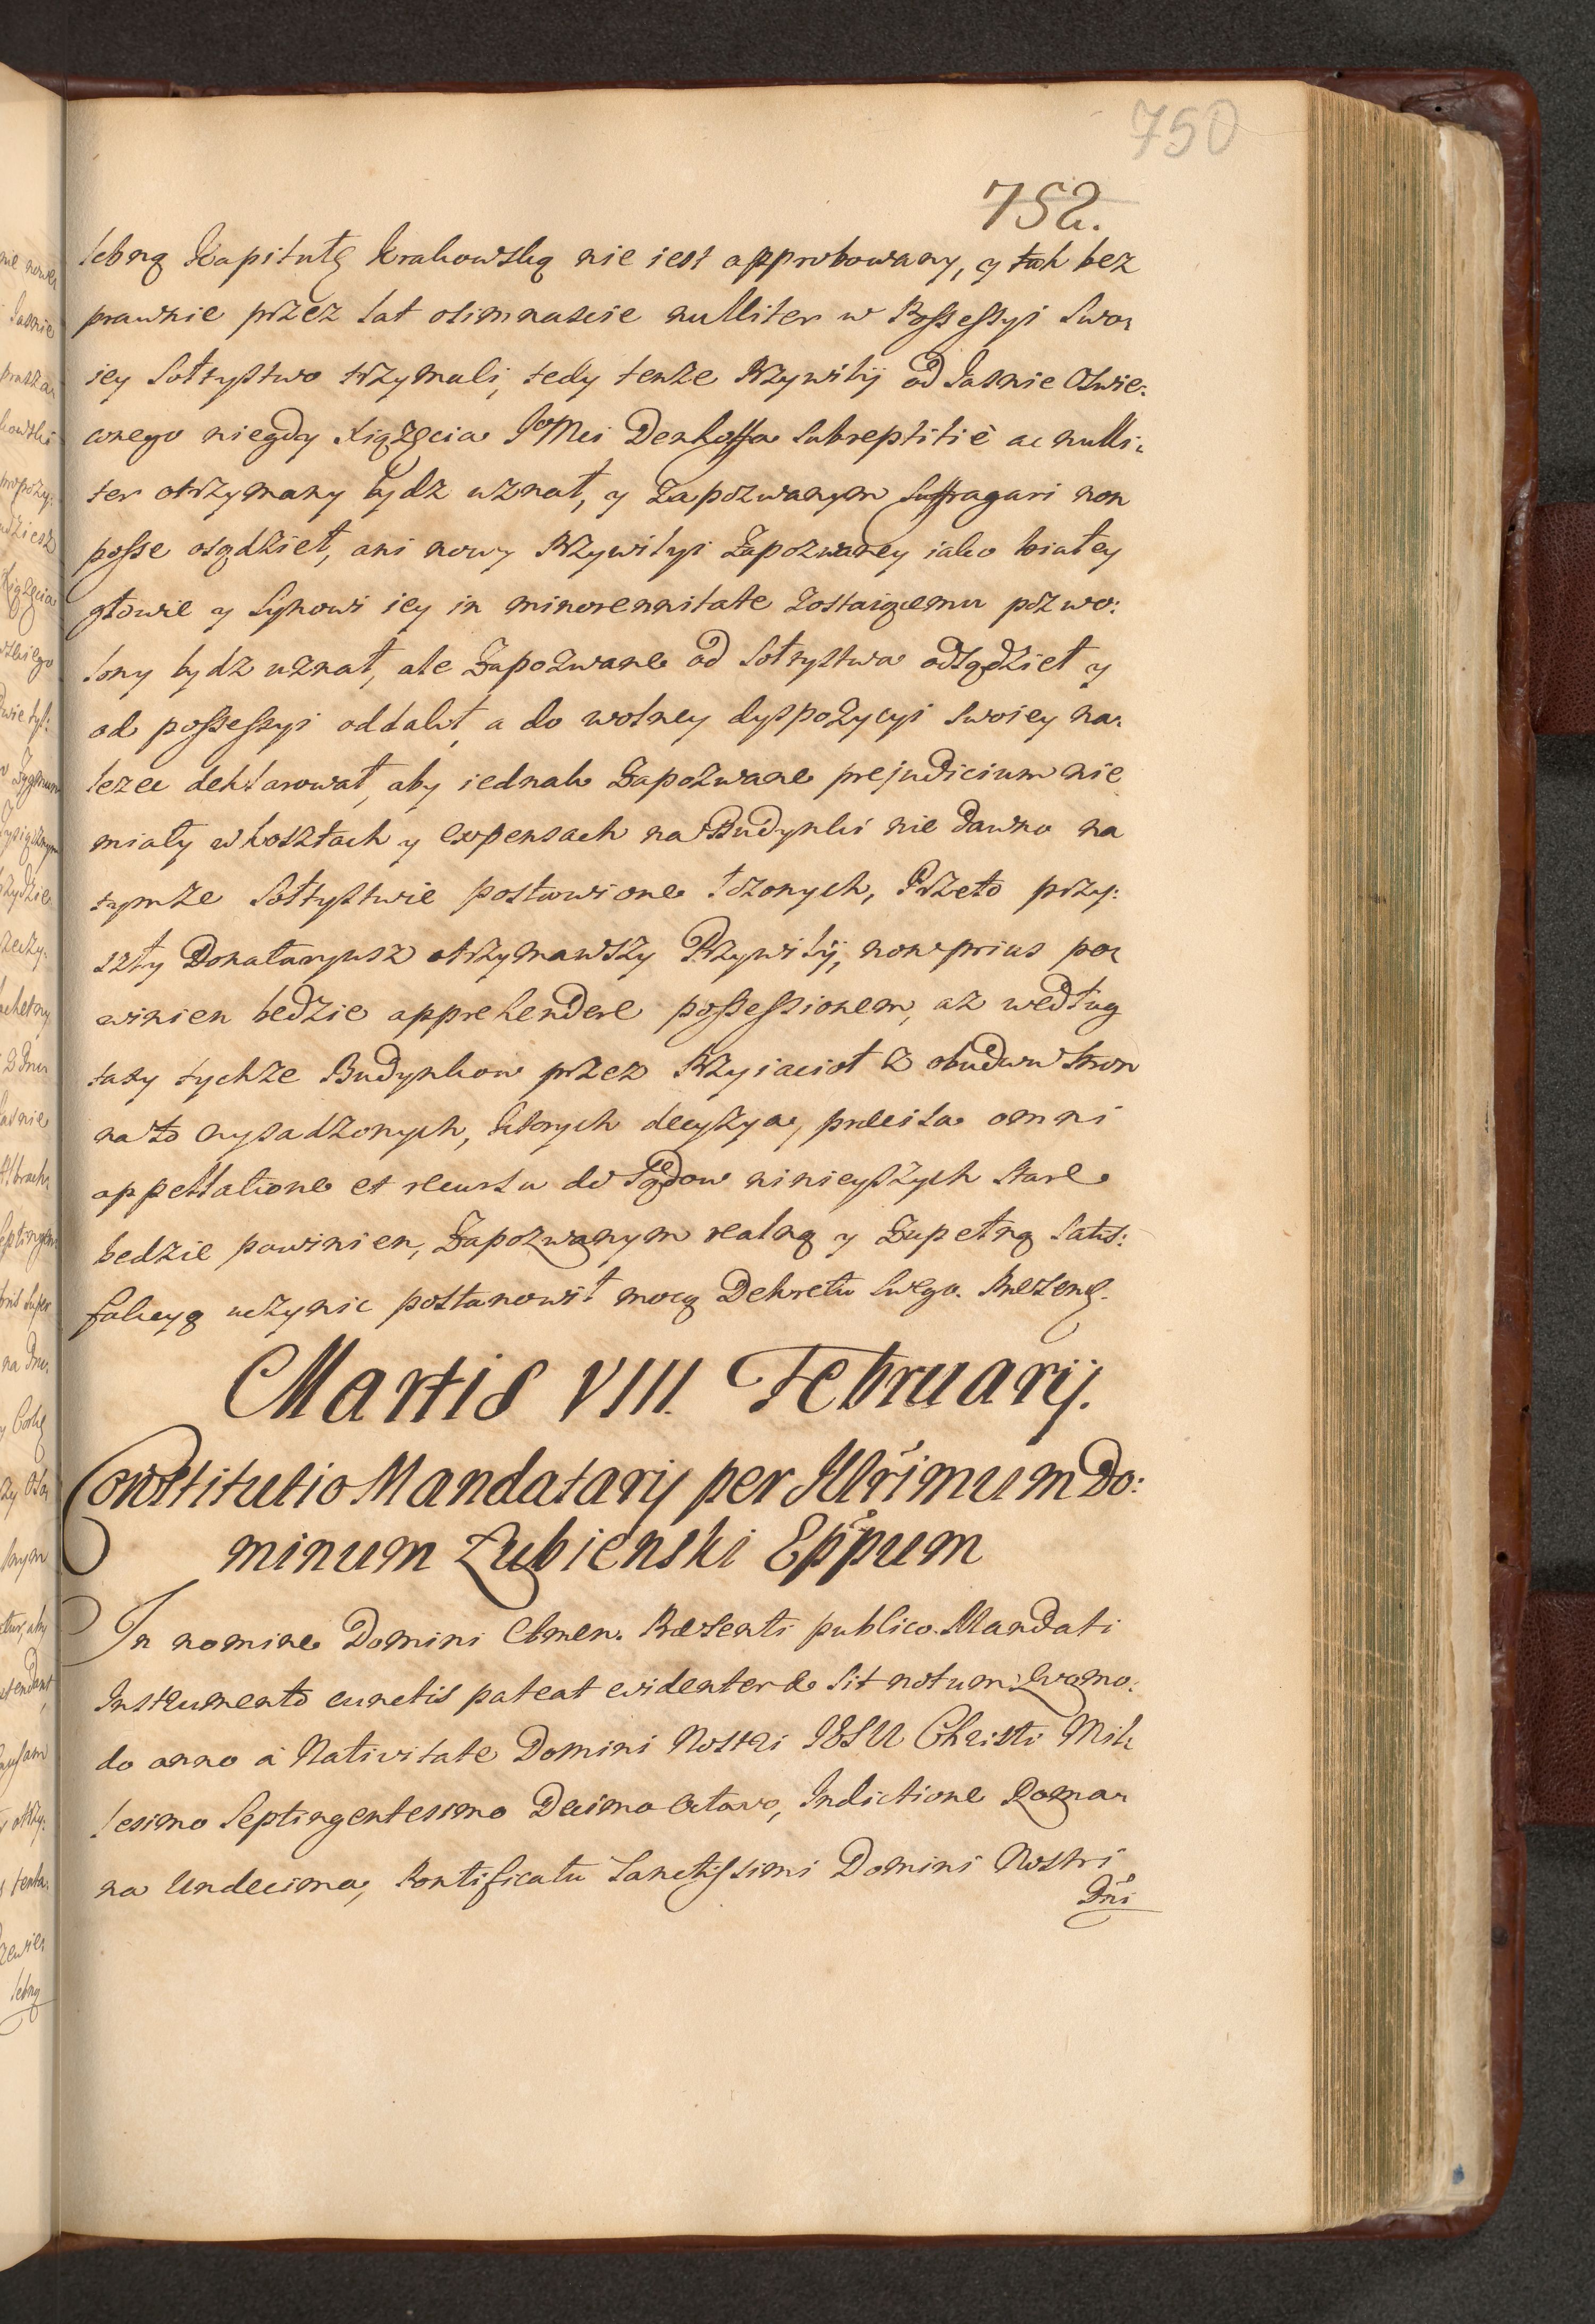 750
752.
lebną Kapitułę Krakowską nie iest approbowany, y tak bez
prawnie przez lat osimnascie nulliter w Possessyi Swo:
iey Sołtystwo trzymali, tedy tenże Przywiliy od Jasnie Oswie:
conego niegdy Xiążęcia JoMci Denhoffa subreptitiè ac nulli:
ter otrzymany bydz uznał, y Zapozwanym suffragari non
posse osądził, ani nowy Przywilyi Zapozwaney iako białey
głowie y Synowi iey in minorennitate zostaiącemu pozwo:
lony bydz uznał, ale Zapozwane od Sołtystwa odsądził y
od possessyi oddalił, a do wolney dyspozycyi swoiey na:
lezec deklarował, aby iednak Zapozwane prejudicium nie
miały w kosztach y expensach na Budynki nie dawno na
tymże Sołtystwie postawione łożonych, Przeto przy:
szły Donataryusz otrzymawszy Przywiliy, non prius po:
winien bedzie apprehendere possessionem, az według
taxy tychże Budynkow przez Przyiacioł z obudwu stron
na to wysadzonych, ktorych decyzya, precisa omni
appellatione et recursu do Sądow ninieyszych stare
bedzie powinien, Zapozwanym realną y Zupełną Satis:
fakcyą uczynic postanowił mocą Dekretu swego. Prezenę.
Martis VIII. Februarij.
Constitutio Mandatarij per Illrimum Do:
minum Łubienski Eppum
In nomine Domini Amen. Præsenti publico Mandati
Instrumento cunctis pateat evidenter & sit notum: Quomo:
do anno à Nativitate Domini Nostri IESU Christi Mil:
lesimo Septingentesimo Decimo Octavo, Indictione Roma:
na Undecima, Pontificatu Sanctissimi Domini Nostri
Dni